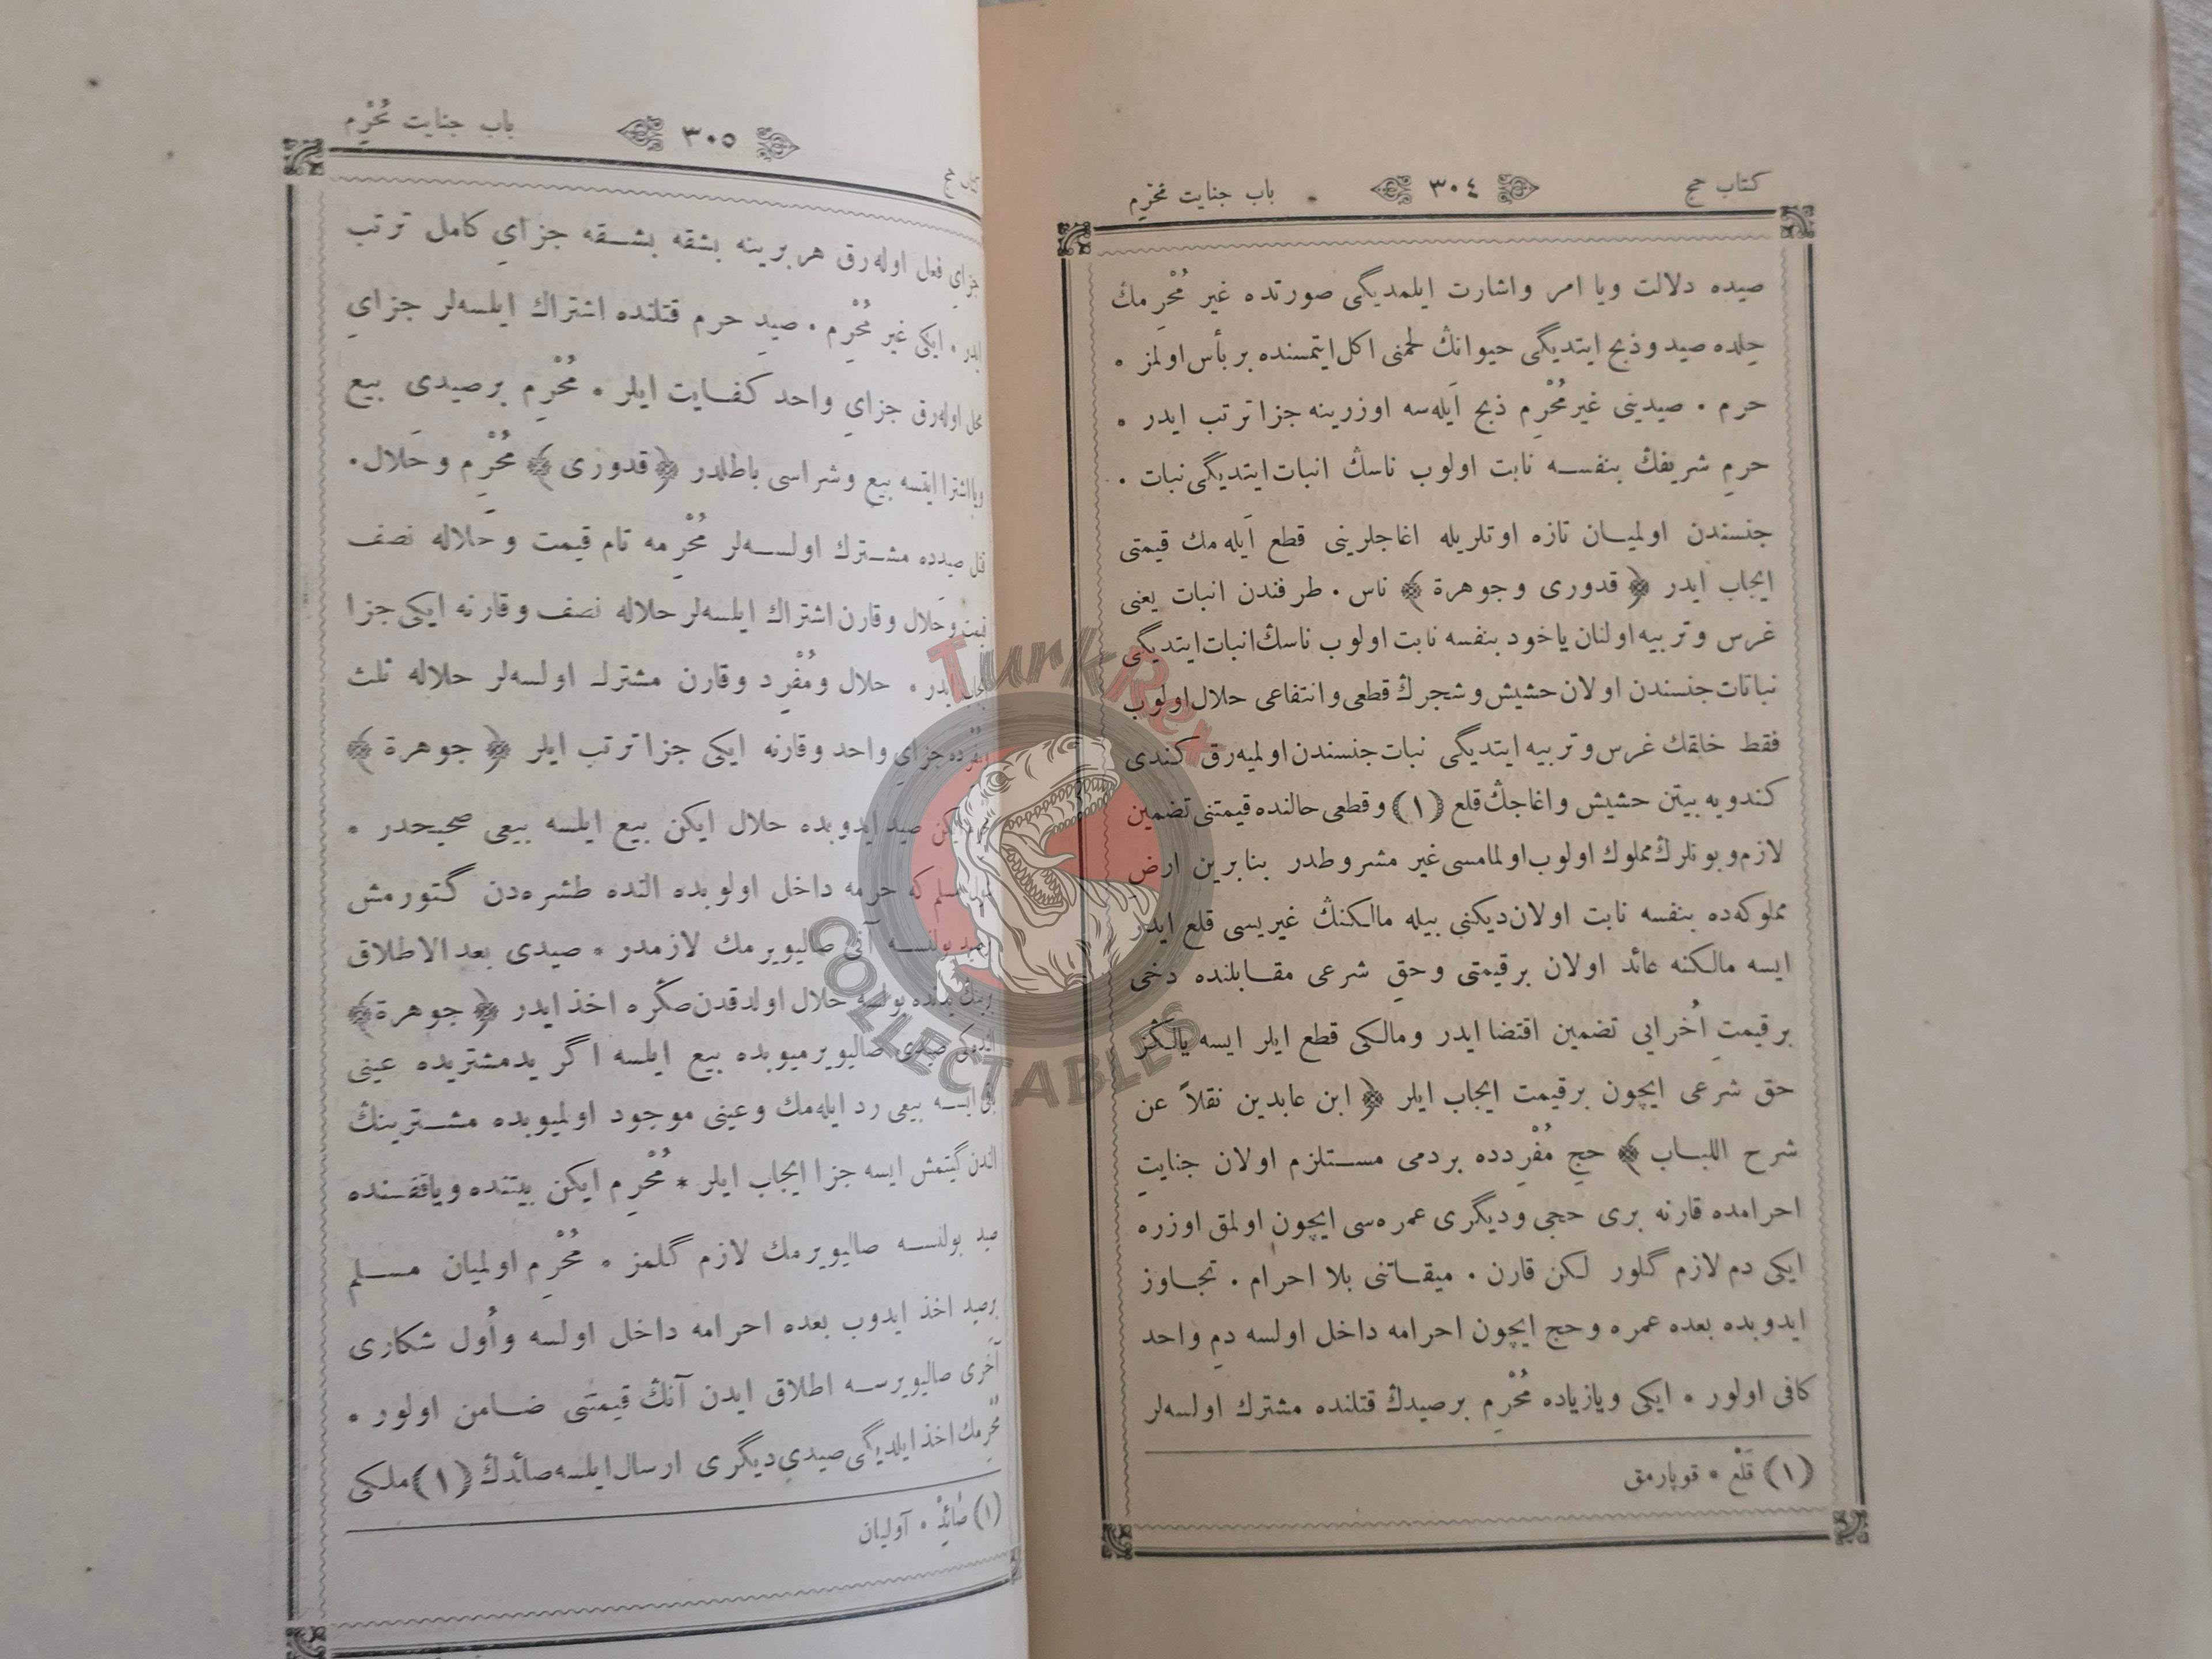 كتاب حج ٣٠٤ باب جنايت مُحْرِم
صيده دلالت ويا امر واشارت ايلمديگى صورتده غير مُحْرِمك
حِلده صيد وذبح ايتديگى حيوانڭ لحمنى اكل ايتمسنده بر بأس اولمز •
حرم • صيدينى غير مُحْرِم ذبح اَيله‌سه اوزرينه جزا ترتب ايدر •
حرمِ شريفڭ بنفسه نابت اولوب ناسڭ انبات ايتديگى نبات •
جنسندن اولميان تازه اوتلريله اغاجلرينى قطع اَيله‌مك قيمتى
ايجاب ايدر ﴿ قدورى وجوهرة ﴾ ناس • طرفندن انبات يعنى
غرس وتربيه اولنان ياخود بنفسه نابت اولوب ناسڭ انبات ايتديگى
نباتات جنسندن اولان حشيش وشجرڭ قطعى وانتفاعى حلال اولوب
فقط خلقك غرس وتربيه ايتديگى نبات جنسندن اولميه‌رق كندى
كندويه بيتن حشيش واغاجڭ قلع (١) وقطعى حالنده قيمتنى تضمين
لازم وبونلرڭ مملوك اولوب اولمامسى غير مشروطدر بنابرين ارض
مملوكه‌ده بنفسه نابت اولان ديكنى بيله مالكنڭ غيريسى قلع ايدر
ايسه مالكنه عائد اولان برقيمتى وحقِ شرعى مقابلنده دخى
برقيمتِ اُخرايى تضمين اقتضا ايدر ومالكى قطع ايلر ايسه يالڭز
حق شرعى ايچون برقيمت ايجاب ايلر ﴿ ابن عابدين نقلاً عن
شرح اللباب ﴾ حجِ مُفْرِدده بردمى مستلزم اولان جنايتِ
احرامده قارنه برى حجى وديگرى عمره‌سى ايچون اولمق اوزره
ايكى دم لازم گلور لكن قارن • ميقاتنى بلا احرام • تجاوز
ايدوبده بعده عمره وحج ايچون احرامه داخل اولسه دمِ واحد
كافى اولور • ايكى ويازياده مُحْرِم برصيدڭ قتلنده مشترك اولسه‌لر
(١) قَلْع • قوپارمق
كتاب حج ٣٠٥ باب جنايت مُحْرِم
جزاىِ فعل اوله‌رق هربرينه بشقه بشقه جزاىِ كامل ترتب
ايدر • ايكى غير مُحْرِم • صيدِ حرم قتلنده اشتراك ايلسه‌لر جزاىِ
محل اوله‌رق جزاىِ واحد كفايت ايلر • مُحْرِم برصيدى بيع
ويا اشترا ايتسه بيع وشراسى باطلدر ﴿قدورى﴾ مُحْرِم وحَلال •
قتل صيدده مشترك اولسه‌لر مُحْرِمه تام قيمت وحلاله نصف
قيمت وحَلال وقارن اشتراك ايلسه‌لر حلاله نصف وقارنه ايكى جزا
ايدر • حلال ومُفْرِد وقارن مشترك اولسه‌لر حلاله ثلث
ومُفْرده جزاىِ واحد وقارنه ايكى جزا ترتب ايلر ﴿ جوهرة ﴾
صيد ايدوبده حلال ايكن بيع ايلسه بيعى صحيحدر •
كه حرمه داخل اولوبده النده طشره‌دن گتورمش
بولنسه آنى صاليويرمك لازمدر • صيدى بعد الاطلاق
بولسه حلال اولدقدن صڭره اخذ ايدر ﴿ جوهرة﴾
صيدى صاليويرميوبده بيع ايلسه اگر يدمشتريده عينى
ايسه بيعى رد ايله‌مك وعينى موجود اولميوبده مشترينڭ
الندن گيتمش ايسه جزا ايجاب ايلر * مُحْرِم ايكن بيتنده وياقفسنده
صيد بولنسه صاليويرمك لازم گلمز • مُحْرِم اولميان مسلم
برصيد اخذ ايدوب بعده احرامه داخل اولسه واُول شكارى
آخرى صاليويرسه اطلاق ايدن آنڭ قيمتنى ضامن اولور •
مُحْرِمك اخذ ايلديگى صيدى ديگرى ارسال ايلسه صائدڭ (١) ملكى
(١) صَائِدْ • آوليان
TurkRex
COLLECTABLES